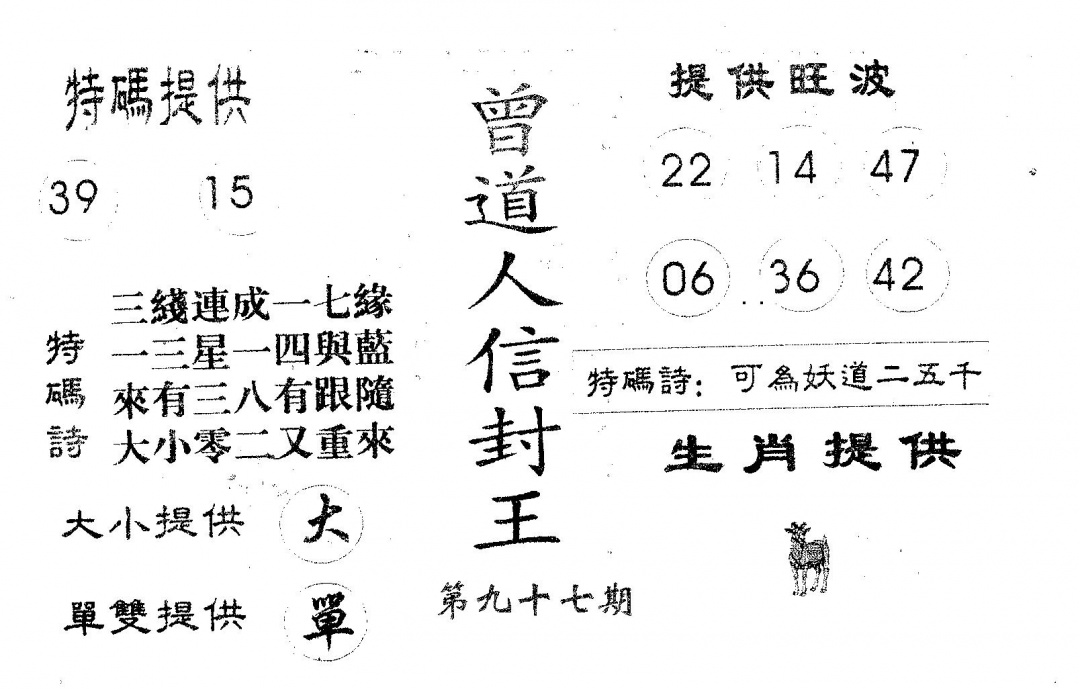 特碼提供
39 15
特碼詩
三綫連成一七緣
一三星一四與藍
來有三八有跟隨
大小零二又重來
大小提供 大
單雙提供 單
曾道人信封王
第九十七期
提供旺波
22 14 47
06 36 42
特碼詩：可為妖道二五千
生肖提供